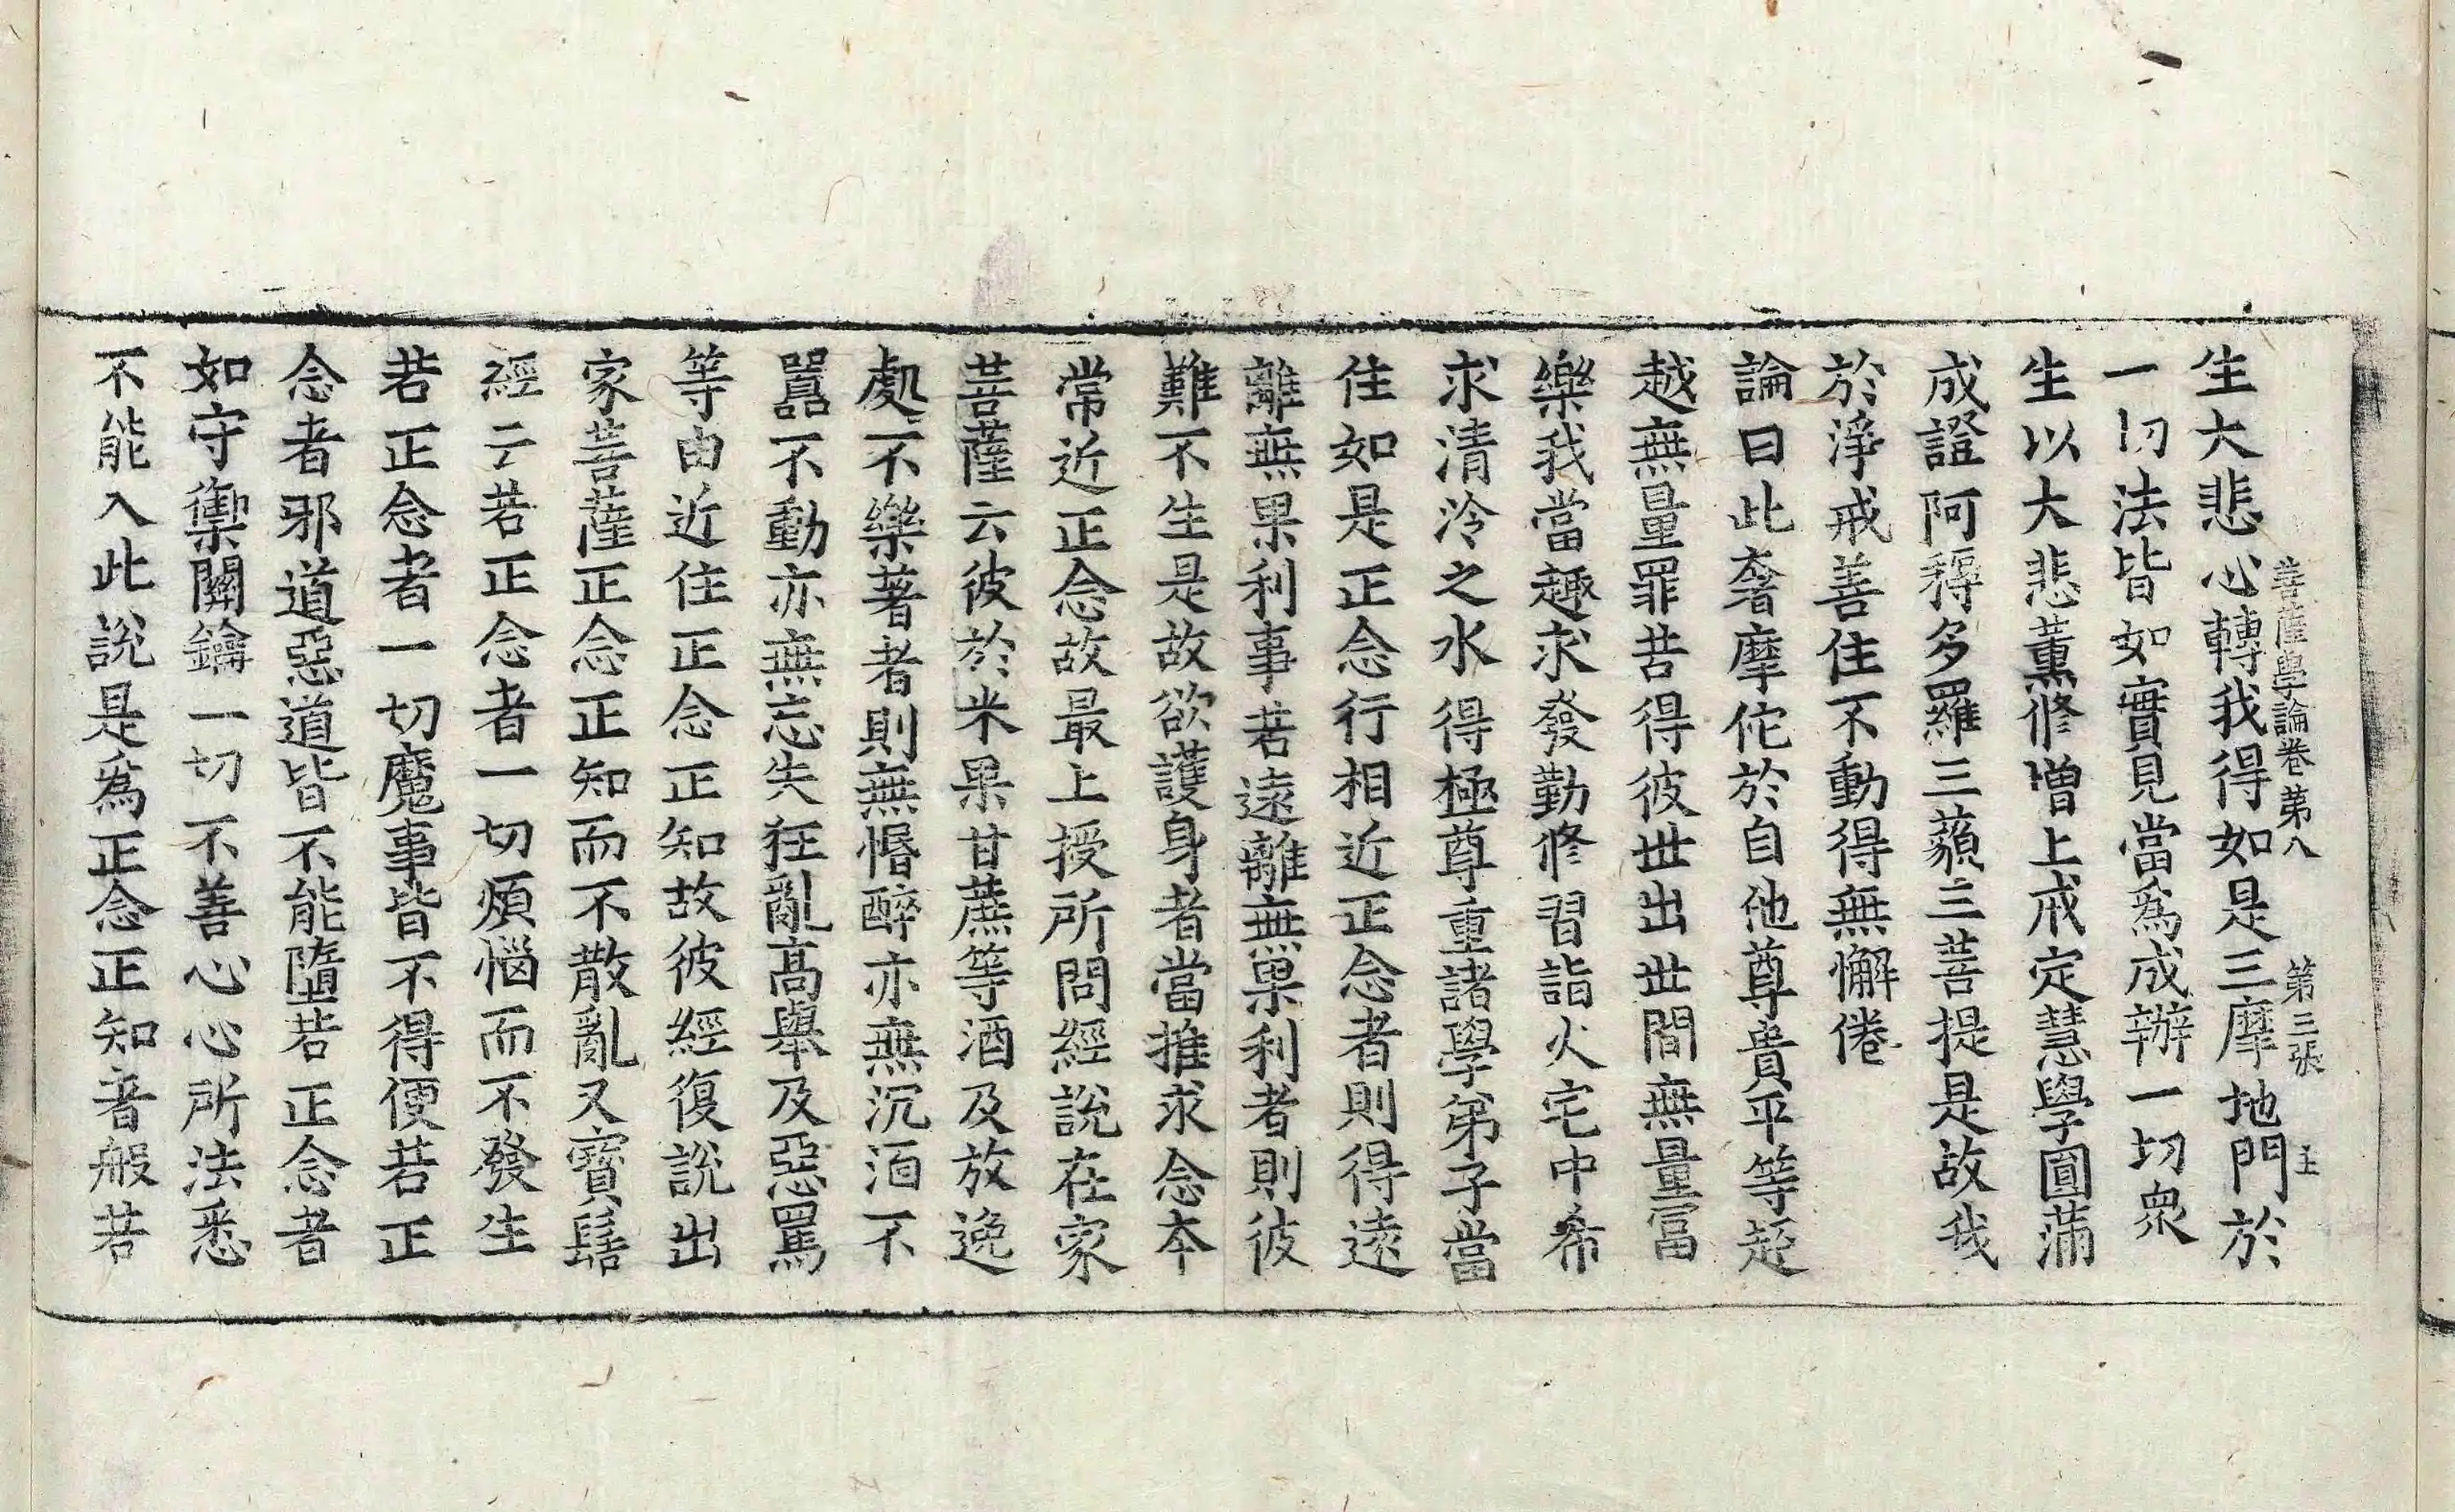 菩薩學論卷第八　第三張　王
生大悲心轉我得如是三摩地門於
一切法皆如實見當爲成辦一切衆
生以大悲薰修增上戒定慧學圓滿
成證阿耨多羅三藐三菩提是故我
於淨戒善住不動得無懈倦
論曰此奢摩佗於自他尊貴平等超
越無量罪苦得彼世出世間無量富
樂我當趣求發勤修習詣火宅中希
求清泠之水得極尊重諸學弟子當
住如是正念行相近正念者則得遠
離無果利事若遠離無果利者則彼
難不生是故欲護身者當推求念本
常近正念故最上授所問經說在家
菩薩云彼於米果甘蔗等酒及放逸
處不樂著者則無惛醉亦無沉湎不
嚚不動亦無忘失狂亂高舉及惡罵
等由近住正念正知故彼經復說出
家菩薩正念正知而不散亂又寶髻
經云若正念者一切煩惱而不發生
若正念者一切魔事皆不得便若正
念者邪道惡道皆不能墮若正念者
如守禦關鑰一切不善心心所法悉
不能入此說是爲正念正知音般若